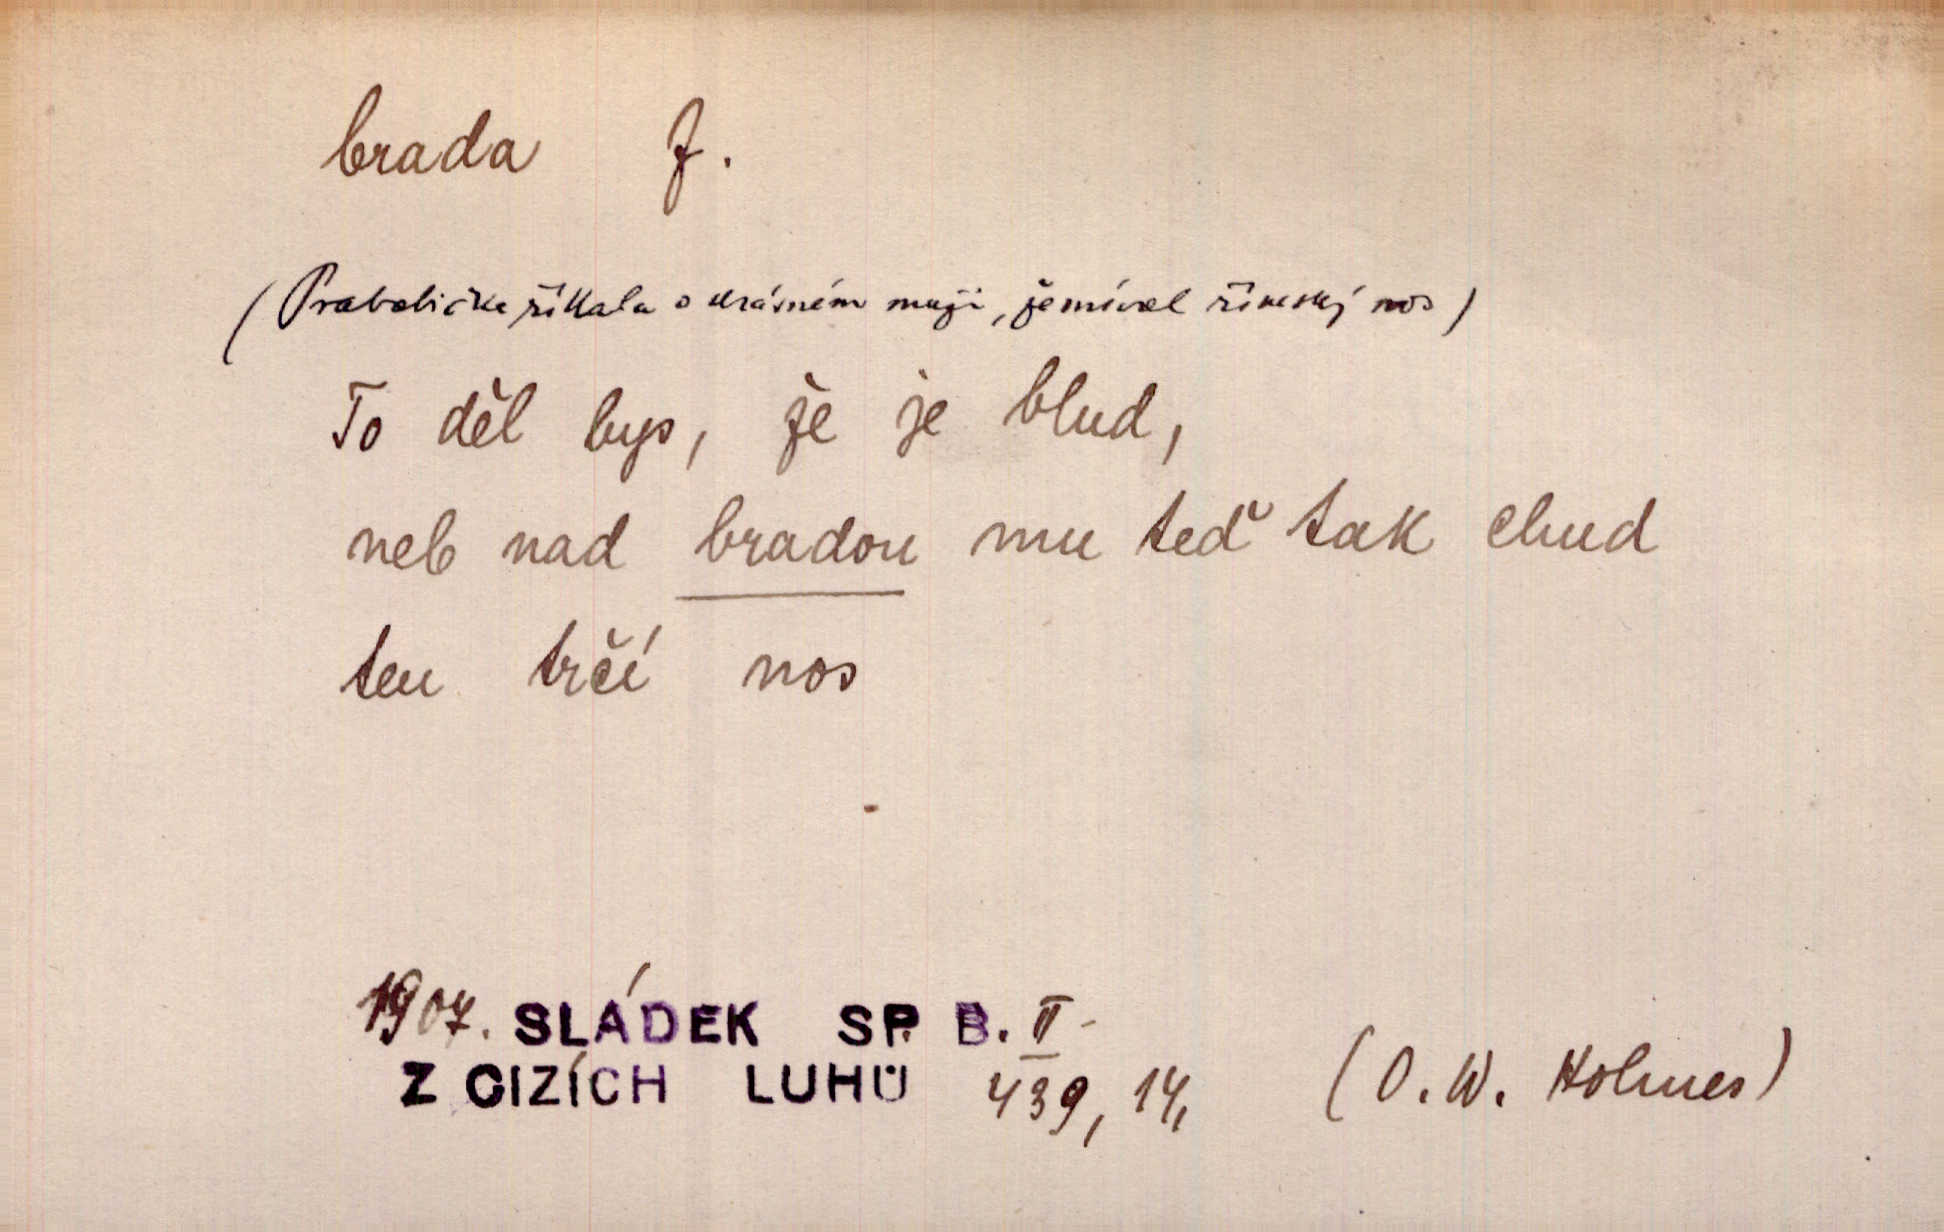 brada f.
(Prababička říkala o krásném muži, že míval římský nos)
To děl bys, že je blud,
neb nad bradou mu teď tak chud
ten trčí nos
1907. SLÁDEK SP. B. II
Z CIZÍCH LUHŮ 439, 14, (O. W. Holmes)